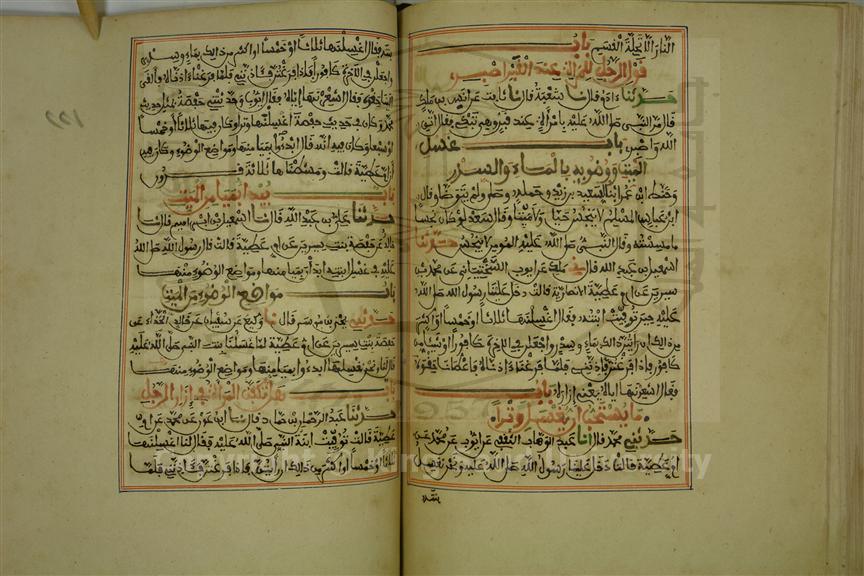 النار الا تحلة القسم باب
قول الرجل للمراة عند القبر اصبر
حدثنا ادم قال نا شعبة قال نا ثابت عن انس بن ملك
قال مر النبي صلى الله عليه بامراة عند قبر وهي تبكي فقال اتق
الله واصبر باب غسل
الميت ووضوئه بالماء والسدر
وحنط ابن عمر ابنا لسعيد بن زيد وحمله وصلى ولم يتوضا وقال
ابن عباس المسلم لا ينجس حيا ولا ميتا وقال سعد لو كان نجسا
ما مسسته وقال النبي صلى الله عليه المومن لا ينجس حدثنا
اسمعيل بن عبد الله قال ني ملك عن ايوب السختياني عن محمد بن
سيرين عن ام عطية الانصارية قالت دخل علينا رسول الله صلى الله
عليه حين توفيت ابنته فقال اغسلنها ثلاثا او خمسا او اكثر
من ذلك ان رايتن ذلك بماء وسدر واجعلن في الاخرة كافورا او شيئا من
كافور فاذا فرغتن فاذنني فلما فرغنا اذناه فاعطانا حقوه
فقال اشعرنها اياه يعني ازاره باب
ما يستحب ان يغسل وترا
حدثني محمد قال انا عبد الوهاب الثقفي عن ايوب عن محمد عن
ام عطية قالت دخل علينا رسول الله صلى الله عليه ونحن نغسل
بنته
فقال اغسلنها ثلاثا او خمسا او اكثر من ذلك بماء وسدر
واجعلن في الاخرة كافورا فاذا فرغتن فاذنني فلما فرغنا اذناه فالقى
الينا حقوه فقال اشعرنها اياه فقال ايوب وحدثتني حفصة بمثل حديث
محمد وكان في حديث حفصة اغسلنها وترا وكان فيه ثلاثا او خمسا
او سبعا وكان فيه انه قال ابدءوا بميامنها ومواضع الوضوء وكان فيه
ان ام عطية قالت ومشطناها ثلاثة قرون
باب يبدا بميامن الميت
حدثنا علي بن عبد الله قال نا اسمعيل بن ابراهيم قال نا
خالد عن حفصة بنت سيرين عن ام عطية قالت قال رسول الله صلى الله
عليه في غسل ابنته ابدان بميامنها ومواضع الوضوء منها
باب مواضع الوضوء من الميت
حدثني يحيى بن موسى قال نا وكيع عن سفيان عن خالد الحذاء عن
حفصة بنت سيرين عن ام عطية لما غسلنا بنت النبي صلى الله عليه
قال لنا ونحن نغسلها ابدءوا بميامنها ومواضع الوضوء منها
باب هل تكفن المراة في ازار الرجل
حدثنا عبد الرحمن بن حماد قال نا ابن عون عن محمد عن ام
عطية قالت توفيت ابنة النبي صلى الله عليه فقال لنا اغسلنها
ثلاثا او خمسا او اكثر من ذلك ان رايتن فاذا فرغتن فاذنني فلما
١٢٢